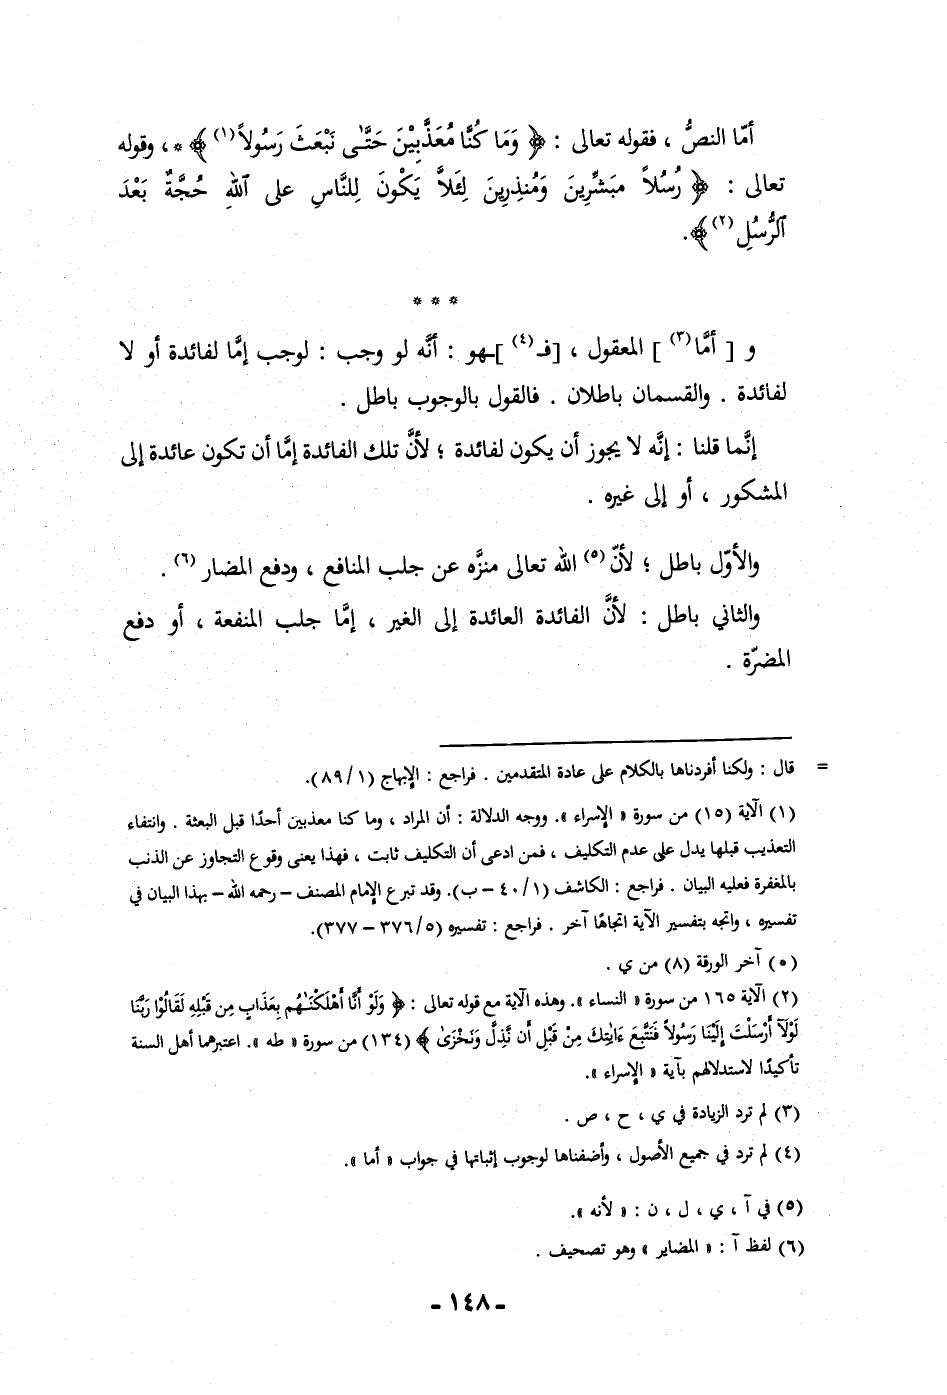 أمّا النصُّ ، فقوله تعالى : ﴿ وَمَا كُنَّا مُعَذِّبِيْنَ حَتَّى نَبْعَثَ رَسُولاً(١) ﴾ * ، وقوله
تعالى : ﴿ رُسُلاً مبَشِّرِينَ وَمُنذِرِينَ لِئَلاَّ يَكُونَ لِلنَّاسِ على ٱللهِ حُجَّةٌ بَعْدَ
ٱلرُّسُلِ(٢) ﴾.
* * *
و [ أمَّا(٣) ] المعقول ، [فـ(٤)]ـهو : أنَّه لو وجب : لوجب إمَّا لفائدة أو لا
لفائدة . والقسمان باطلان . فالقول بالوجوب باطل .
إنَّما قلنا : إنَّه لا يجوز أن يكون لفائدة ؛ لأنَّ تلك الفائدة إمَّا أن تكون عائدة إلى
المشكور ، أو إلى غيره .
والأوّل باطل ؛ لأنّ(٥) الله تعالى منزَّه عن جلب المنافع ، ودفع المضار(٦) .
والثاني باطل : لأنَّ الفائدة العائدة إلى الغير ، إمَّا جلب المنفعة ، أو دفع
المضرّة .
= قال : ولكنا أفردناها بالكلام على عادة المتقدمين . فراجع : الإبهاج (٨٩/١).
(١) الآية (١٥) من سورة « الإسراء ». ووجه الدلالة : أن المراد ، وما كنا معذبين أحدًا قبل البعثة . وانتفاء
التعذيب قبلها يدل على عدم التكليف ، فمن ادعى أن التكليف ثابت ، فهذا يعنى وقوع التجاوز عن الذنب
بالمغفرة فعليه البيان . فراجع : الكاشف (٤٠/١ – ب). وقد تبرع الإمام المصنف – رحمه الله – بهذا البيان في
تفسيره ، واتجه بتفسير الآية اتجاهًا آخر . فراجع : تفسيره (٣٧٦/٥ – ٣٧٧).
(*) آخر الورقة (٨) من ي .
(٢) الآية ١٦٥ من سورة « النساء ». وهذه الآية مع قوله تعالى : ﴿ وَلَوْ أَنَّا أَهْلَكْنَـٰهُم بِعَذَابٍ مِن قَبْلِهِ لَقَالُوا رَبَّنَا
لَوْلَآ أَرْسَلْتَ إِلَيْنَا رَسُولاً فَنَتَّبِعَ ءَايَٰتِكَ مِنْ قَبْلِ أَن نَّذِلَّ وَنَخْزَىٰ ﴾ (١٣٤) من سورة « طه ». اعتبرهما أهل السنة
تأكيدًا لاستدلالهم بآية « الإسراء ».
(٣) لم ترد الزيادة في ي ، ح ، ص .
(٤) لم ترد في جميع الأصول ، وأضفناها لوجوب إثباتها في جواب « أما ».
(٥) في آ ، ي ، ل ، ن : « لأنه ».
(٦) لفظ آ : « المضاير » وهو تصحيف .
- ١٤٨ -